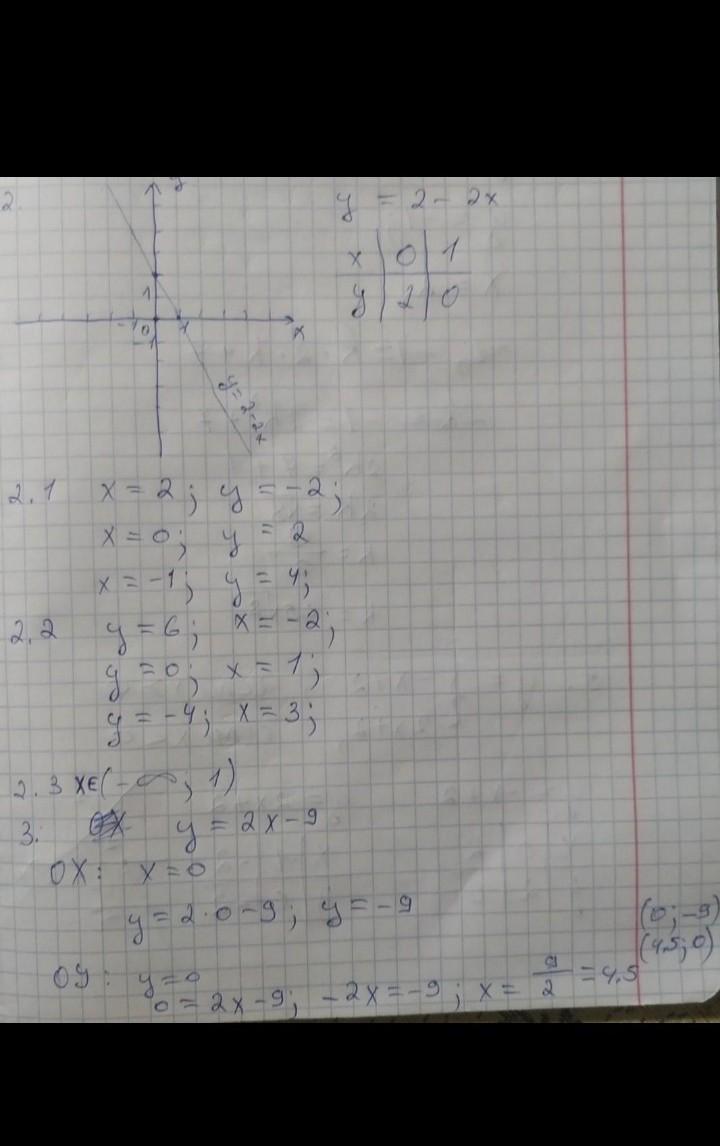 2.
y
y = 2 - 2x
x | 0 | 1
y | 2 | 0
1
-1 0 1 x
-1
y = 2-2x
2.1 x = 2; y = -2;
x = 0; y = 2
x = -1; y = 4;
2.2 y = 6; x = -2;
y = 0; x = 1;
y = -4; x = 3;
2.3 x∈(-∞; 1)
3. y = 2x - 9
OX: x = 0
y = 2·0-9; y = -9
(0; -9)
(4,5; 0)
OY: y = 0
0 = 2x-9; -2x = -9; x = 9/2 = 4,5